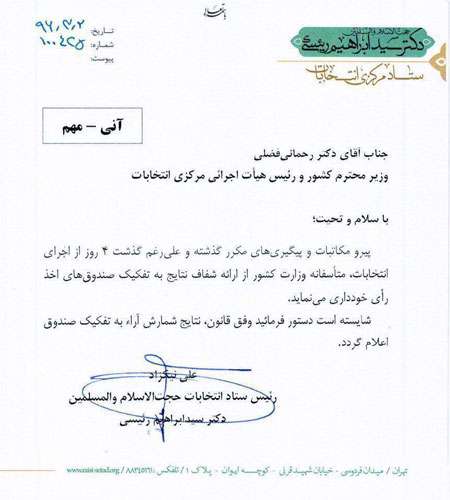 باسمه تعالی
حجت‌الاسلام والمسلمین
دکتر سید ابراهیم رئیسی
ستاد مرکزی انتخابات
تاریخ: ۹۶/۳/۲
شماره: ۱۰۰۴۲۵
پیوست:
آنی - مهم
جناب آقای دکتر رحمانی‌فضلی
وزیر محترم کشور و رئیس هیأت اجرائی مرکزی انتخابات
با سلام و تحیت؛
پیرو مکاتبات و پیگیری‌های مکرر گذشته و علی‌رغم گذشت ۴ روز از اجرای
انتخابات، متأسفانه وزارت کشور از ارائه شفاف نتایج به تفکیک صندوق‌های اخذ
رأی خودداری می‌نماید.
شایسته است دستور فرمائید وفق قانون، نتایج شمارش آراء به تفکیک صندوق
اعلام گردد.
علی نیکزاد
رئیس ستاد انتخابات حجت‌الاسلام والمسلمین
دکتر سیدابراهیم رئیسی
تهران / میدان فردوسی - خیابان شهید قرنی - کوچه ایوان - پلاک ۱ / تلفکس: